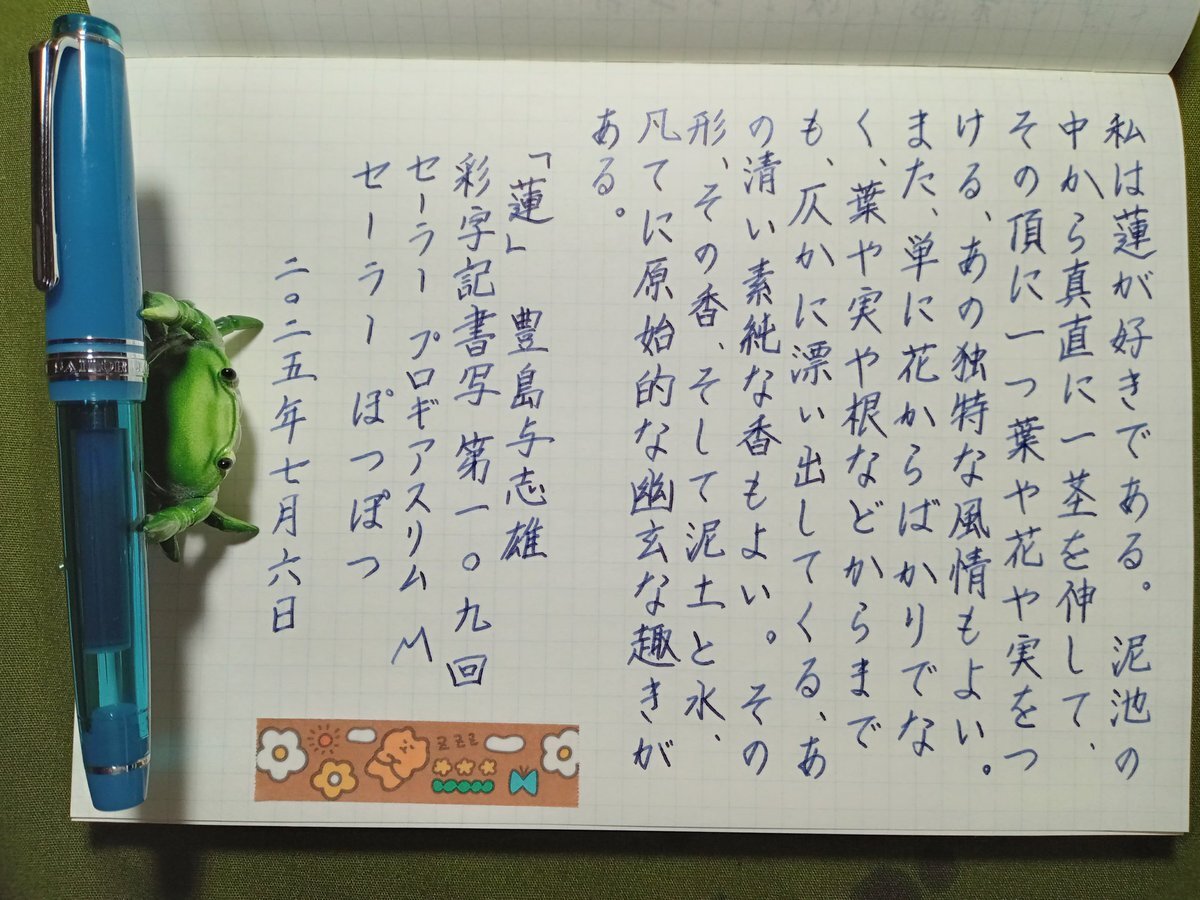 私は蓮が好きである。泥池の
中から真直に一茎を伸して、
その頂に一つ葉や花や実をつ
ける、あの独特な風情もよい。
また、単に花からばかりでな
く、葉や実や根などからまで
も、仄かに漂い出してくる、あ
の清い素純な香もよい。その
形、その香、そして泥土と水、
凡てに原始的な幽玄な趣きが
ある。
「蓮」 豊島与志雄
彩字記書写 第一〇九回
セーラー プロギアスリム M
セーラー ぽつぽつ
二〇二五年七月六日
ZZZ
SAILOR